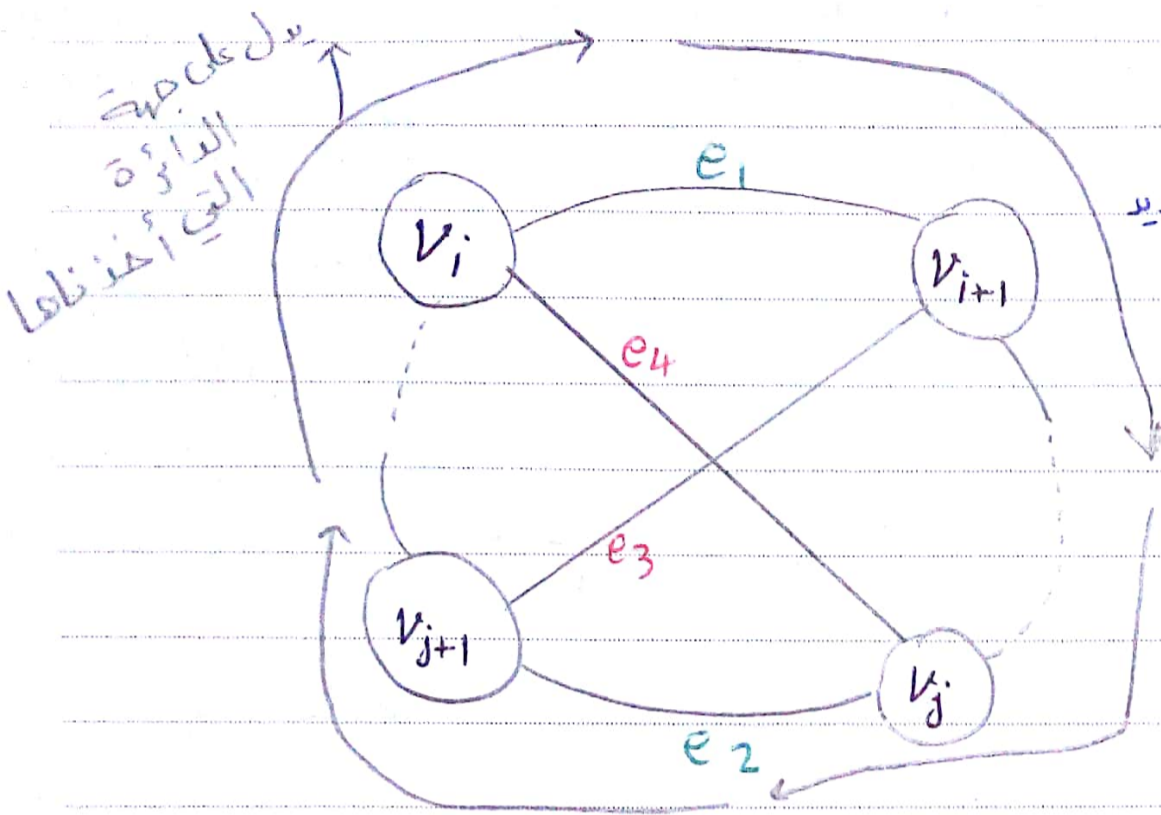 يدل على جهة
الدائرة
التي أخذناها
e1
Vi
Vi+1
e4
e3
Vj+1
Vj
e2